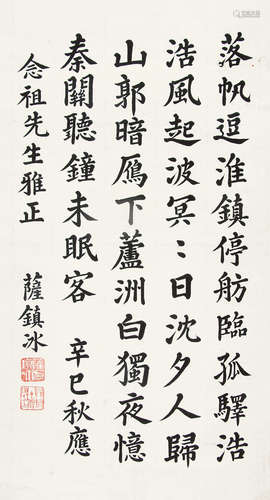 落帆逗淮鎮停舫臨孤驛浩
浩風起波冥〻日沈夕人歸
山郭暗鴈下蘆洲白獨夜憶
秦關聽鐘未眠客 辛巳秋應
念祖先生雅正 薩鎮冰